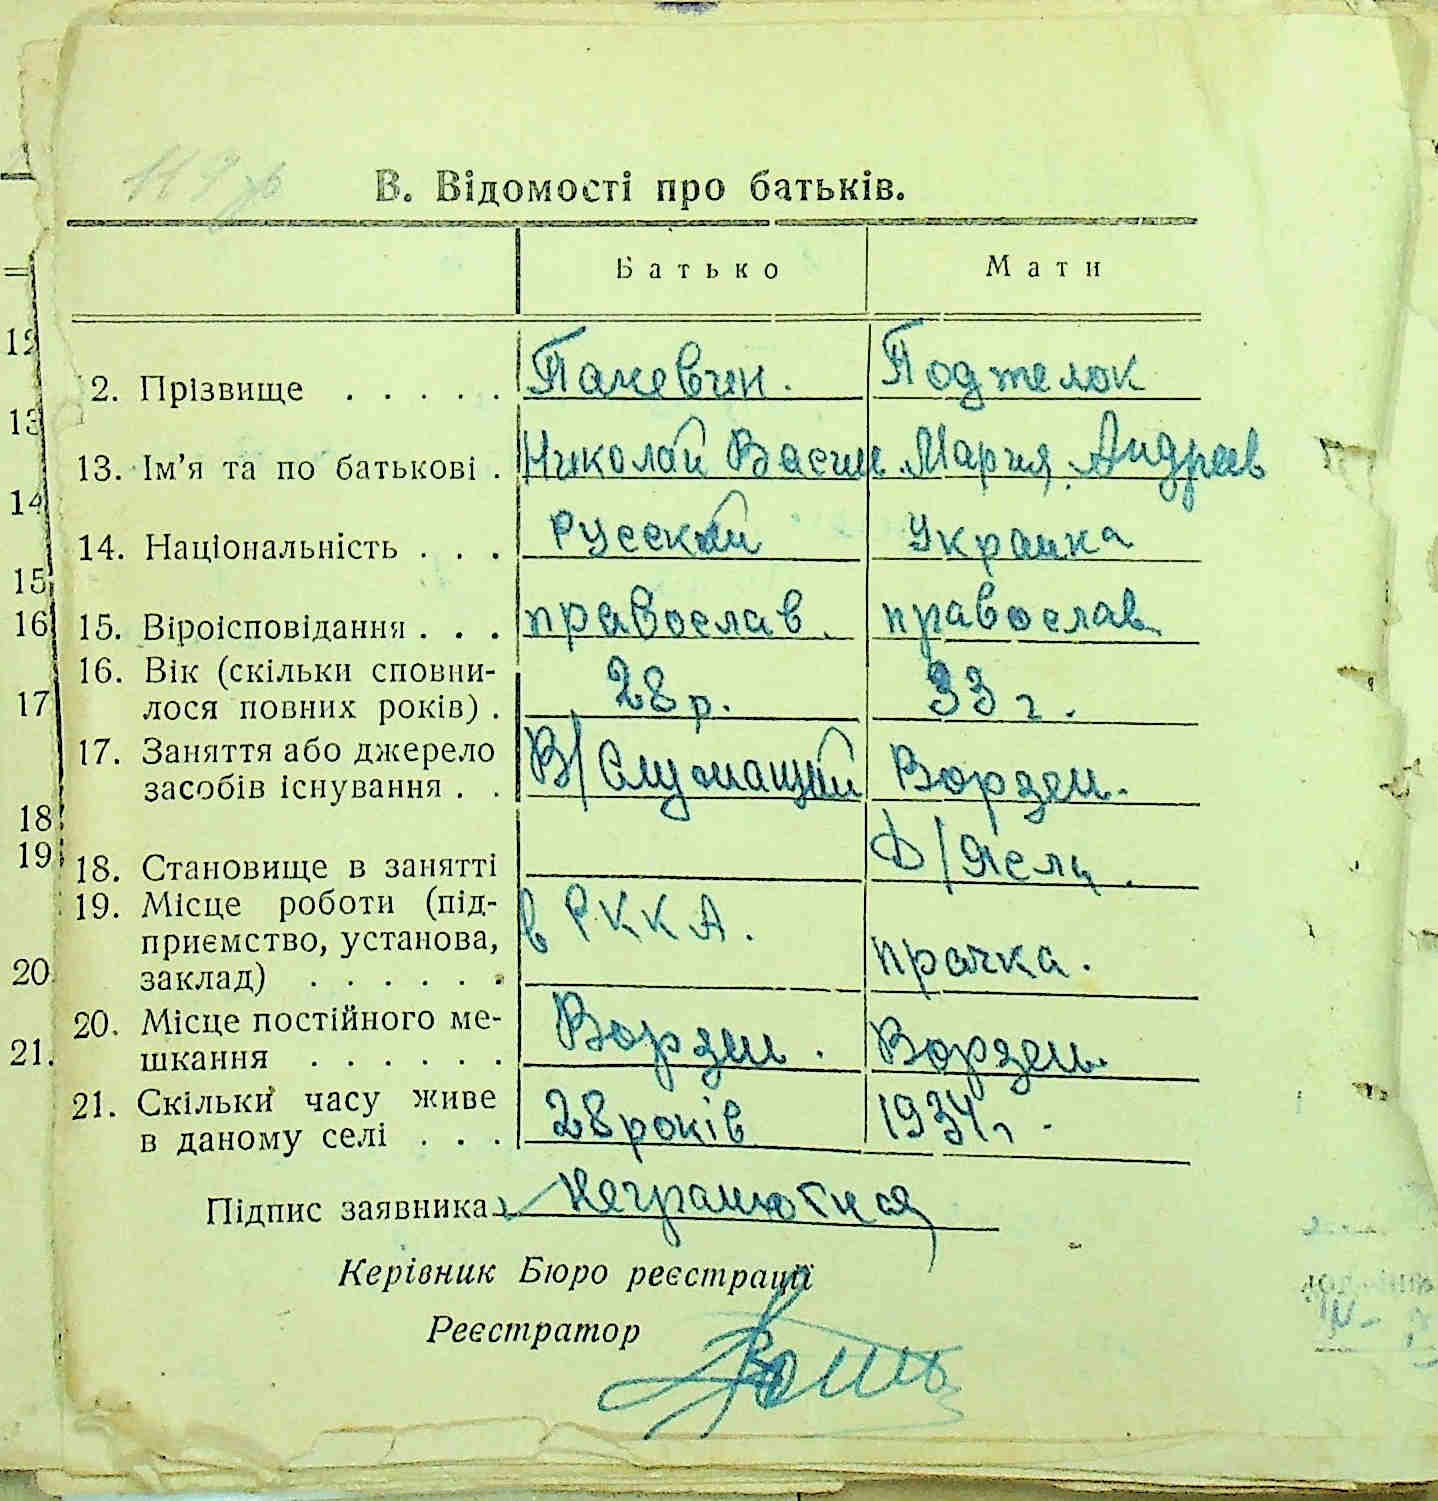 В. Відомості про батьків.
Батько Мати
2. Прізвище . . . . . Поджелок
13. Ім’я та по батькові . Николай Васил. Мария Андреев
14. Національність . . . Русский Украинка
15. Віроісповідання . . . православ. православ
16. Вік (скільки сповни-
лося повних років) . 28 р. 33 г.
17. Заняття або джерело
засобів існування . . В/Служащий Ворзель.
18. Становище в занятті Д/Ясли.
19. Місце роботи (під-
приємство, установа,
заклад) . . . . . . в РККА. прачка.
20. Місце постійного ме-
шкання . . . . . . Ворзель. Ворзель.
21. Скільки часу живе
в даному селі . . . 28 років 1934 г.
Підпис заявника Неграмотная
Керівник Бюро реєстрації
Реєстратор
12
13
14
15
16
17
18
19
20
21.